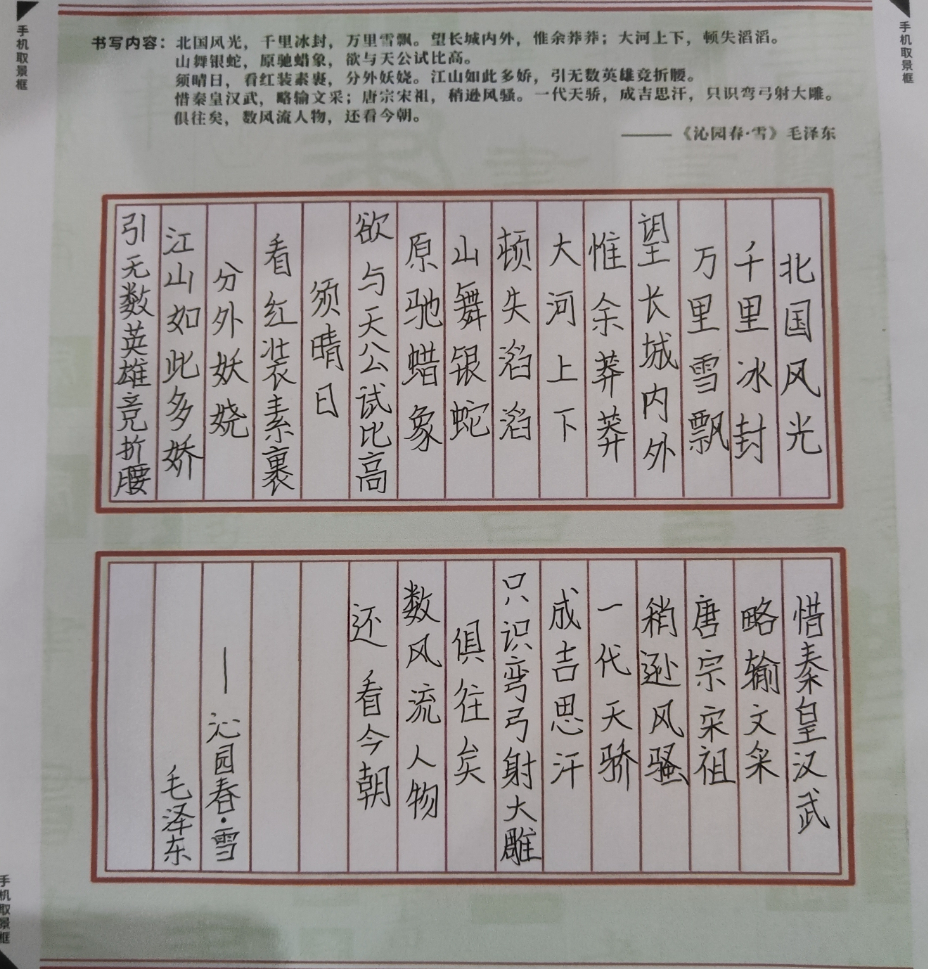 手机取景框
手机取景框
书写内容：北国风光，千里冰封，万里雪飘。望长城内外，惟余莽莽；大河上下，顿失滔滔。
山舞银蛇，原驰蜡象，欲与天公试比高。
须晴日，看红装素裹，分外妖娆。江山如此多娇，引无数英雄竞折腰。
惜秦皇汉武，略输文采；唐宗宋祖，稍逊风骚。一代天骄，成吉思汗，只识弯弓射大雕。
俱往矣，数风流人物，还看今朝。
——《沁园春·雪》毛泽东
北国风光
千里冰封
万里雪飘
望长城内外
惟余莽莽
大河上下
顿失滔滔
山舞银蛇
原驰蜡象
欲与天公试比高
须晴日
看红装素裹
分外妖娆
江山如此多娇
引无数英雄竞折腰
惜秦皇汉武
略输文采
唐宗宋祖
稍逊风骚
一代天骄
成吉思汗
只识弯弓射大雕
俱往矣
数风流人物
还看今朝
—沁园春·雪
毛泽东
手机取景框